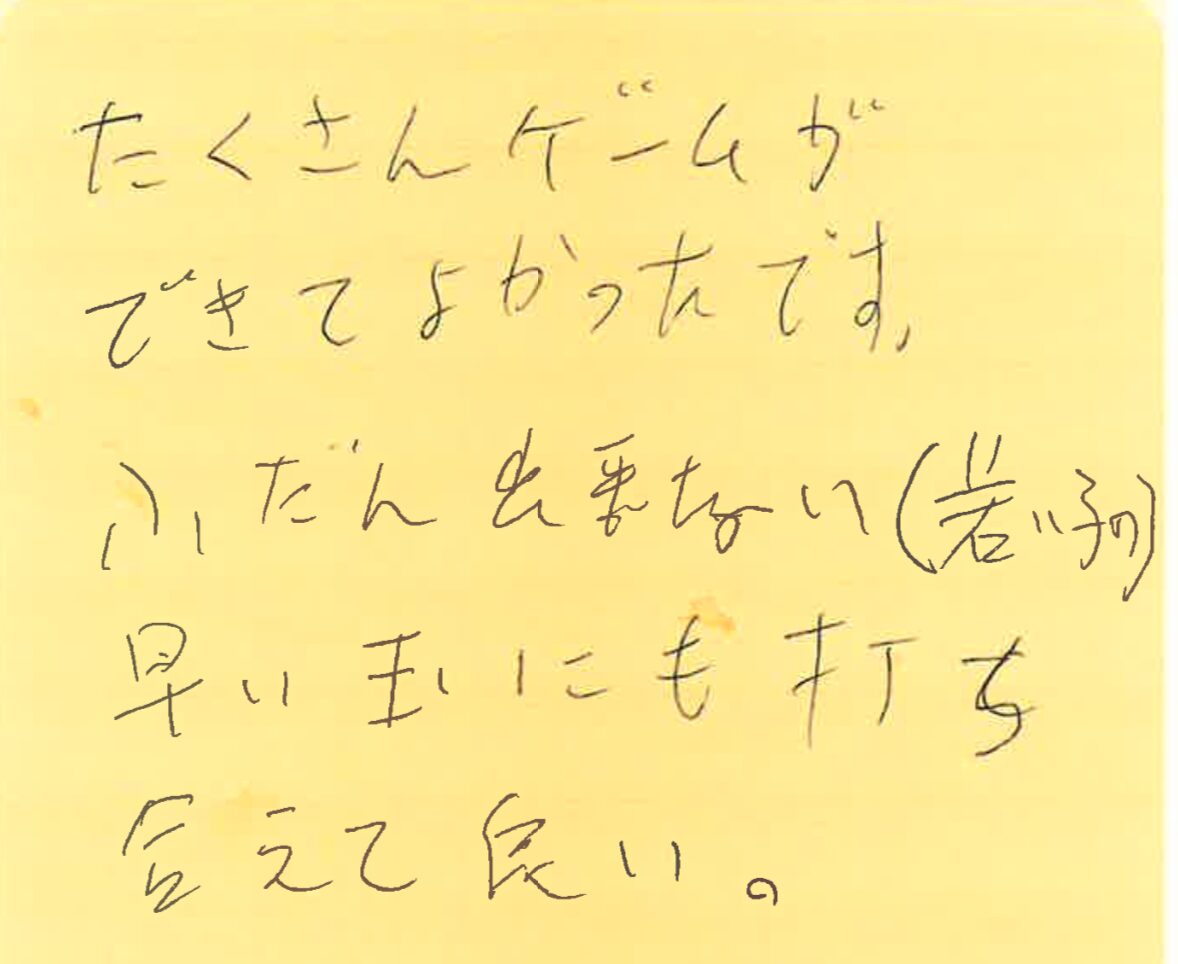 たくさんゲームが
できてよかったです。
ふだん出来ない(若い子の)
早い玉にも打ち
合えて良い。